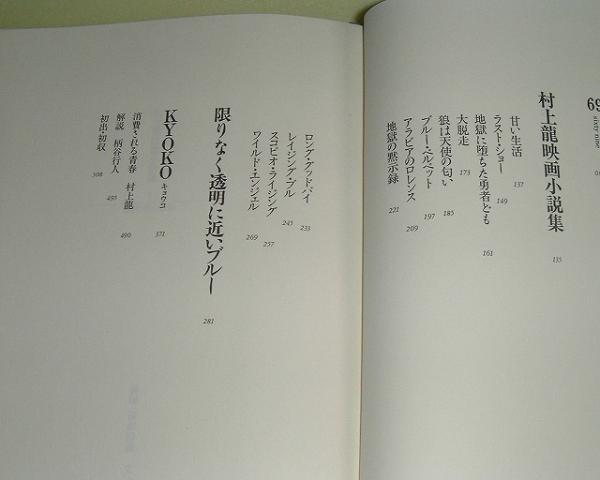 69
sixty nine
村上龍映画小説集
135
甘い生活
137
ラスト・ショー
149
地獄に堕ちた勇者ども
161
大脱走
173
狼は天使の匂い
185
ブルー・ベルベット
197
アラビアのロレンス
209
地獄の黙示録
221
ロング・グッドバイ
233
レイジング・ブル
245
スコピオ・ライジング
257
ワイルド・エンジェル
269
限りなく透明に近いブルー
281
KYOKO キョウコ
371
消費される青春 村上龍
490
解説 柄谷行人
495
初出・初収
508